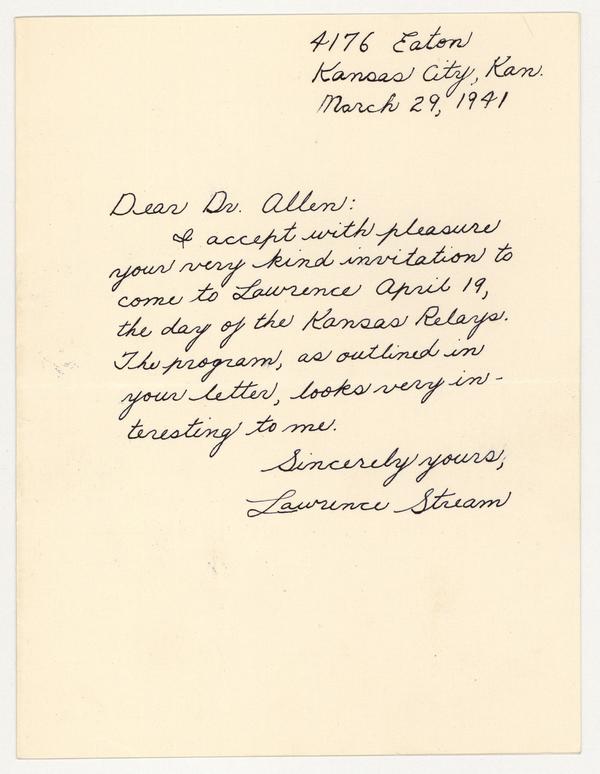 4176 Eaton
Kansas City, Kan.
March 29, 1941
Dear Dr. Allen:
I accept with pleasure
your very kind invitation to
come to Lawrence April 19,
the day of the Kansas Relays.
The program, as outlined in
your letter, looks very in-
teresting to me.
Sincerely yours,
Lawrence Stream